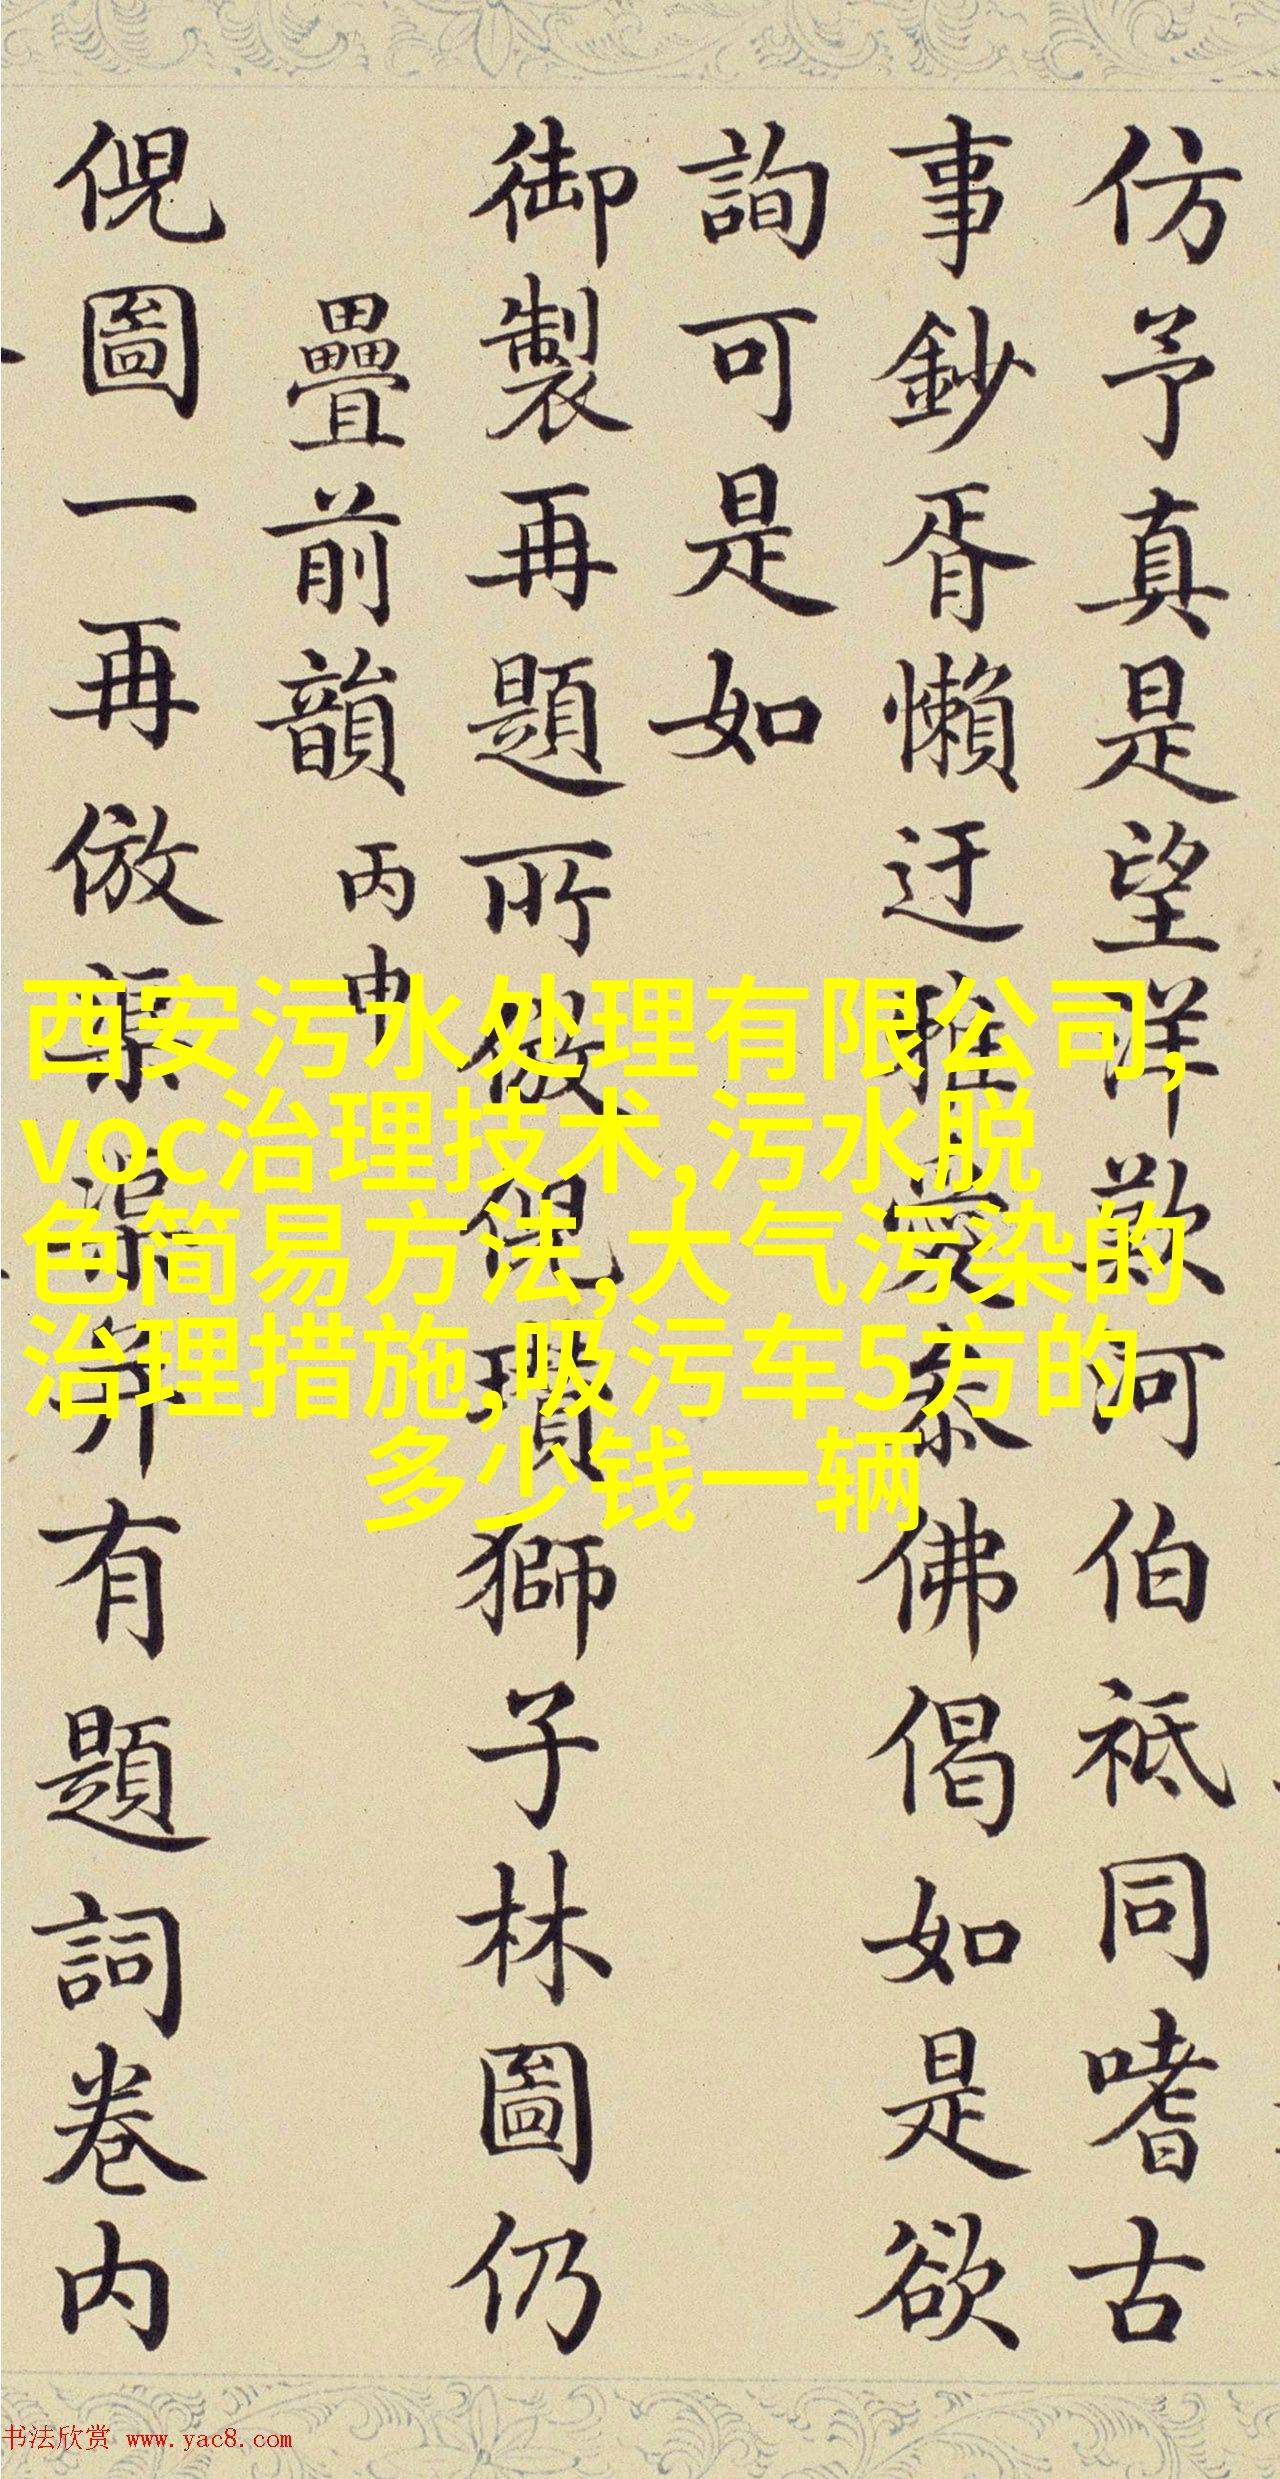 仿予真是望洋歎河伯祗同嗜古
事鈔胥懶迂雅愛參佛偈如是欲
詢可是如
御製再題所倣倪瓚獅子林圖仍
疊前韻 丙申
倪圖一再倣藁渠弆有題詞卷内
西安污水处理有限公司,
voc治理技术,污水脱
色简易方法,大气污染的
治理措施,吸污车5方的
多少钱一辆
书法欣赏 www.yac8.com